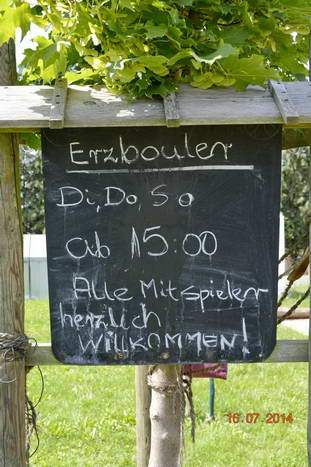 Erzbouler
Di, Do, So
ab 15:00
Alle Mitspieler
herzlich
WILLKOMMEN!
16.07.2014